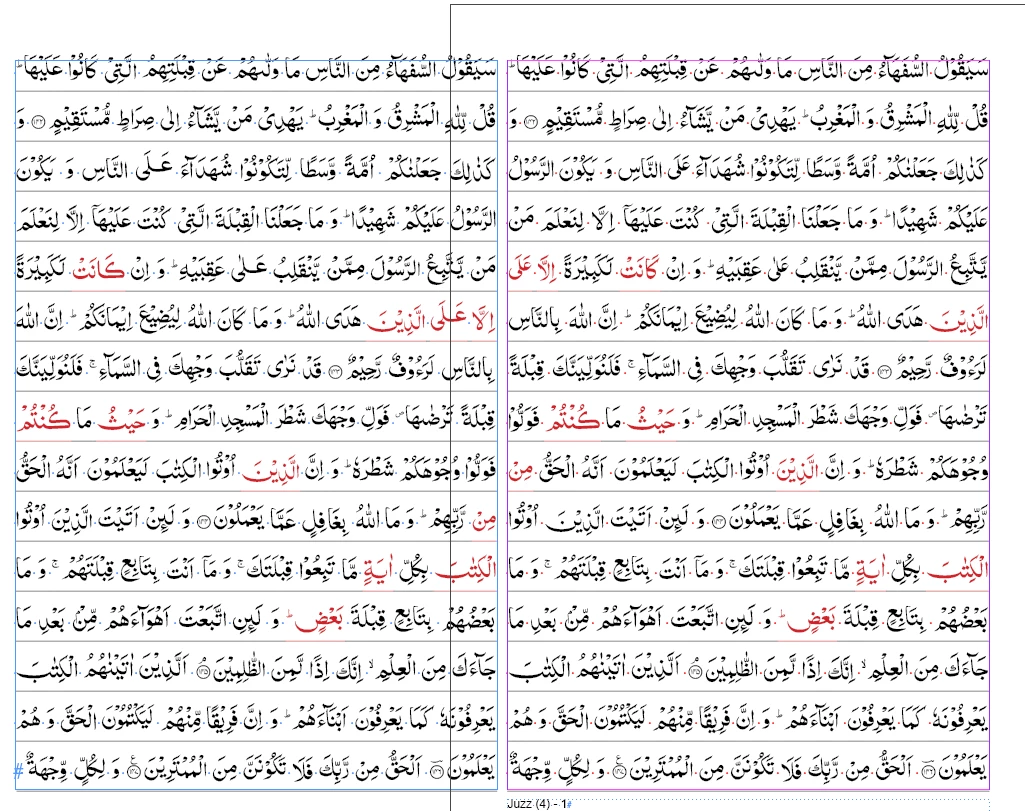 سَيَقُوۡلُ السُّفَهَآءُ مِنَ النَّاسِ مَا وَلّٰٮهُمۡ عَنۡ قِبۡلَتِهِمُ الَّتِىۡ كَانُوۡا عَلَيۡهَا ؕ
قُلۡ لِّلّٰهِ الۡمَشۡرِقُ وَ الۡمَغۡرِبُ ؕ يَهۡدِىۡ مَنۡ يَّشَآءُ اِلٰى صِرَاطٍ مُّسۡتَقِيۡمٍ ۝۱۴۲ وَ
كَذٰلِكَ جَعَلۡنٰكُمۡ اُمَّةً وَّسَطًا لِّتَکُوۡنُوۡا شُهَدَآءَ عَلَى النَّاسِ وَ يَكُوۡنَ الرَّسُوۡلُ
عَلَيۡكُمۡ شَهِيۡدًا ؕ وَ مَا جَعَلۡنَا الۡقِبۡلَةَ الَّتِىۡ كُنۡتَ عَلَيۡهَآ اِلَّا لِنَعۡلَمَ مَنۡ
يَّتَّبِعُ الرَّسُوۡلَ مِمَّنۡ يَّنۡقَلِبُ عَلٰى عَقِبَيۡهِ ؕ وَ اِنۡ كَانَتۡ لَكَبِيۡرَةً اِلَّا عَلَى
الَّذِيۡنَ هَدَى اللّٰهُ ؕ وَ مَا كَانَ اللّٰهُ لِيُضِيۡعَ اِيۡمَانَكُمۡ ؕ اِنَّ اللّٰهَ بِالنَّاسِ
لَرَءُوۡفٌ رَّحِيۡمٌ ۝۱۴۳ قَدۡ نَرٰى تَقَلُّبَ وَجۡهِكَ فِى السَّمَآءِ ۚ فَلَنُوَلِّيَنَّكَ قِبۡلَةً
تَرۡضٰٮهَا ۪ فَوَلِّ وَجۡهَكَ شَطۡرَ الۡمَسۡجِدِ الۡحَرَامِ ؕ وَ حَيۡثُ مَا كُنۡتُمۡ فَوَلُّوۡا
وُجُوۡهَكُمۡ شَطۡرَهٗ ؕ وَ اِنَّ الَّذِيۡنَ اُوۡتُوا الۡكِتٰبَ لَيَعۡلَمُوۡنَ اَنَّهُ الۡحَقُّ مِنۡ
رَّبِّهِمۡ ؕ وَ مَا اللّٰهُ بِغَافِلٍ عَمَّا يَعۡمَلُوۡنَ ۝۱۴۴ وَ لَئِنۡ اَتَيۡتَ الَّذِيۡنَ اُوۡتُوا
الۡكِتٰبَ بِكُلِّ اٰيَةٍ مَّا تَبِعُوۡا قِبۡلَتَكَ ۚ وَ مَآ اَنۡتَ بِتَابِعٍ قِبۡلَتَهُمۡ ۚ وَ مَا
بَعۡضُهُمۡ بِتَابِعٍ قِبۡلَةَ بَعۡضٍ ؕ وَ لَئِنِ اتَّبَعۡتَ اَهۡوَآءَهُمۡ مِّنۡۢ بَعۡدِ مَا
جَآءَكَ مِنَ الۡعِلۡمِ ۙ اِنَّكَ اِذًا لَّمِنَ الظّٰلِمِيۡنَ ۝۱۴۵ اَلَّذِيۡنَ اٰتَيۡنٰهُمُ الۡكِتٰبَ
يَعۡرِفُوۡنَهٗ كَمَا يَعۡرِفُوۡنَ اَبۡنَآءَهُمۡ ؕ وَ اِنَّ فَرِيۡقًا مِّنۡهُمۡ لَيَكۡتُمُوۡنَ الۡحَقَّ وَ هُمۡ
يَعۡلَمُوۡنَ ۝۱۴۶ اَلۡحَقُّ مِنۡ رَّبِّكَ فَلَا تَكُوۡنَنَّ مِنَ الۡمُمۡتَرِيۡنَ ۝۱۴۷ وَ لِكُلٍّ وِّجۡهَةٌ
Juzz (4) - 1#
سَيَقُوۡلُ السُّفَهَآءُ مِنَ النَّاسِ مَا وَلّٰٮهُمۡ عَنۡ قِبۡلَتِهِمُ الَّتِىۡ كَانُوۡا عَلَيۡهَا ؕ
قُلۡ لِّلّٰهِ الۡمَشۡرِقُ وَ الۡمَغۡرِبُ ؕ يَهۡدِىۡ مَنۡ يَّشَآءُ اِلٰى صِرَاطٍ مُّسۡتَقِيۡمٍ ۝۱۴۲ وَ
كَذٰلِكَ جَعَلۡنٰكُمۡ اُمَّةً وَّسَطًا لِّتَکُوۡنُوۡا شُهَدَآءَ عَلَى النَّاسِ وَ يَكُوۡنَ
الرَّسُوۡلُ عَلَيۡكُمۡ شَهِيۡدًا ؕ وَ مَا جَعَلۡنَا الۡقِبۡلَةَ الَّتِىۡ كُنۡتَ عَلَيۡهَآ اِلَّا لِنَعۡلَمَ
مَنۡ يَّتَّبِعُ الرَّسُوۡلَ مِمَّنۡ يَّنۡقَلِبُ عَلٰى عَقِبَيۡهِ ؕ وَ اِنۡ كَانَتۡ لَكَبِيۡرَةً
اِلَّا عَلَى الَّذِيۡنَ هَدَى اللّٰهُ ؕ وَ مَا كَانَ اللّٰهُ لِيُضِيۡعَ اِيۡمَانَكُمۡ ؕ اِنَّ اللّٰهَ
بِالنَّاسِ لَرَءُوۡفٌ رَّحِيۡمٌ ۝۱۴۳ قَدۡ نَرٰى تَقَلُّبَ وَجۡهِكَ فِى السَّمَآءِ ۚ فَلَنُوَلِّيَنَّكَ
قِبۡلَةً تَرۡضٰٮهَا ۪ فَوَلِّ وَجۡهَكَ شَطۡرَ الۡمَسۡجِدِ الۡحَرَامِ ؕ وَ حَيۡثُ مَا كُنۡتُمۡ
فَوَلُّوۡا وُجُوۡهَكُمۡ شَطۡرَهٗ ؕ وَ اِنَّ الَّذِيۡنَ اُوۡتُوا الۡكِتٰبَ لَيَعۡلَمُوۡنَ اَنَّهُ الۡحَقُّ
مِنۡ رَّبِّهِمۡ ؕ وَ مَا اللّٰهُ بِغَافِلٍ عَمَّا يَعۡمَلُوۡنَ ۝۱۴۴ وَ لَئِنۡ اَتَيۡتَ الَّذِيۡنَ اُوۡتُوا
الۡكِتٰبَ بِكُلِّ اٰيَةٍ مَّا تَبِعُوۡا قِبۡلَتَكَ ۚ وَ مَآ اَنۡتَ بِتَابِعٍ قِبۡلَتَهُمۡ ۚ وَ مَا
بَعۡضُهُمۡ بِتَابِعٍ قِبۡلَةَ بَعۡضٍ ؕ وَ لَئِنِ اتَّبَعۡتَ اَهۡوَآءَهُمۡ مِّنۡۢ بَعۡدِ مَا
جَآءَكَ مِنَ الۡعِلۡمِ ۙ اِنَّكَ اِذًا لَّمِنَ الظّٰلِمِيۡنَ ۝۱۴۵ اَلَّذِيۡنَ اٰتَيۡنٰهُمُ الۡكِتٰبَ
يَعۡرِفُوۡنَهٗ كَمَا يَعۡرِفُوۡنَ اَبۡنَآءَهُمۡ ؕ وَ اِنَّ فَرِيۡقًا مِّنۡهُمۡ لَيَكۡتُمُوۡنَ الۡحَقَّ وَ هُمۡ
يَعۡلَمُوۡنَ ۝۱۴۶ اَلۡحَقُّ مِنۡ رَّبِّكَ فَلَا تَكُوۡنَنَّ مِنَ الۡمُمۡتَرِيۡنَ ۝۱۴۷ وَ لِكُلٍّ وِّجۡهَةٌ #